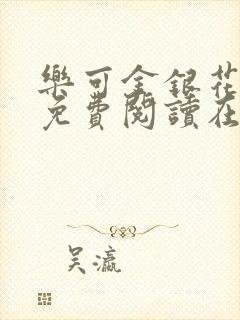 樂可金銀花
免費閱讀在
吴瀛